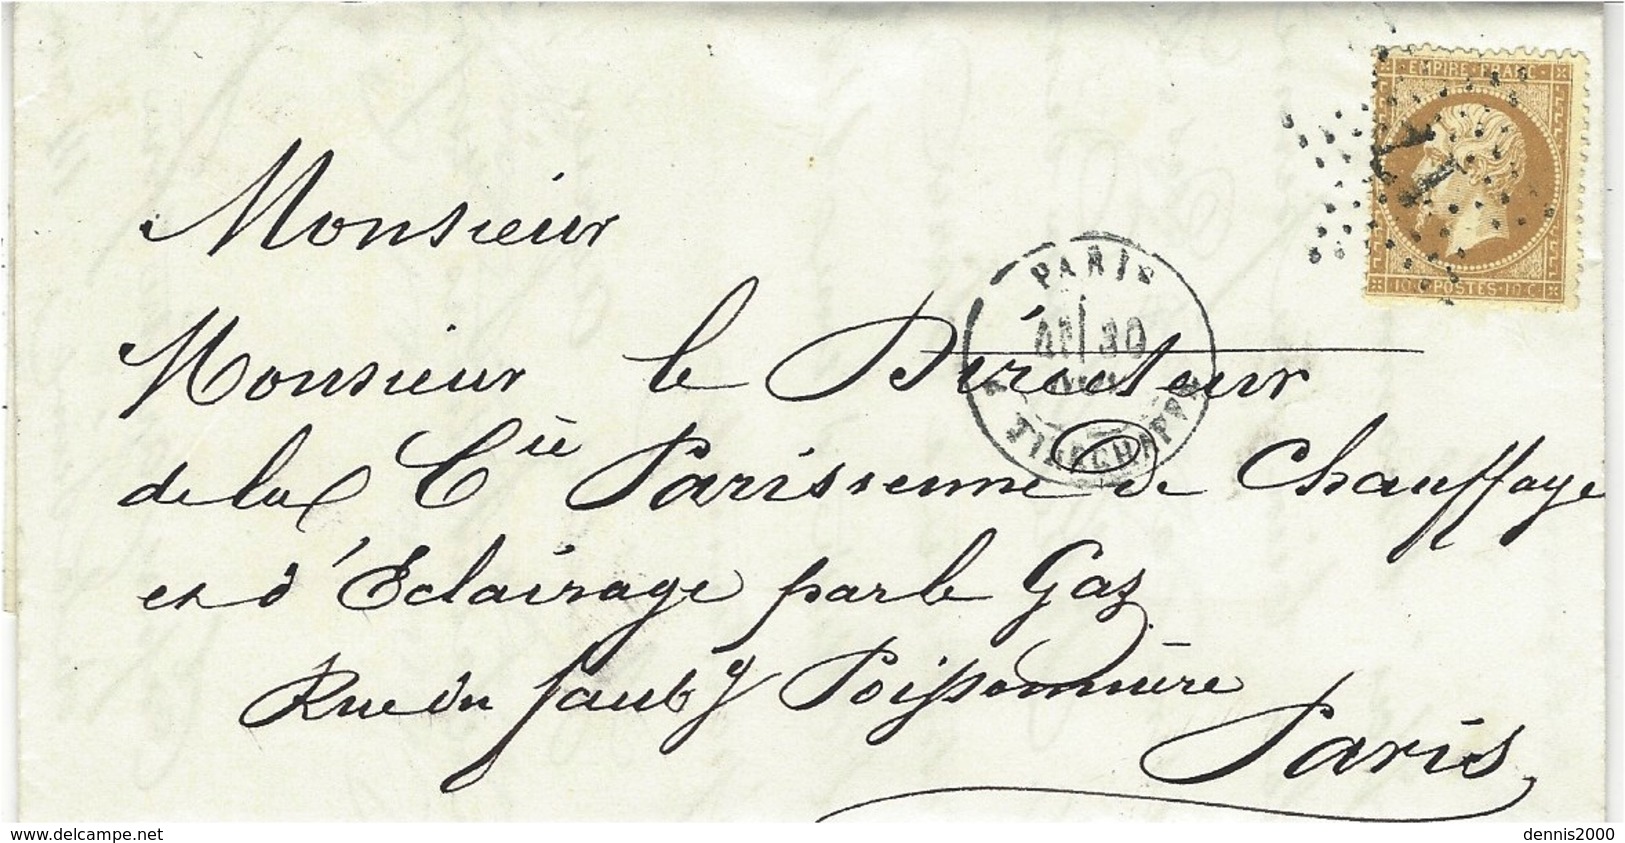 EMPIRE FRANC
10 C POSTES 10 C
1
Monsieur
PARIS
30
Monsieur le Directeur
de la Cie Parisienne de Chauffage
et d'Eclairage par le Gaz
Rue du Faubg Poissonnière
Paris
www.delcampe.net
dennis2000